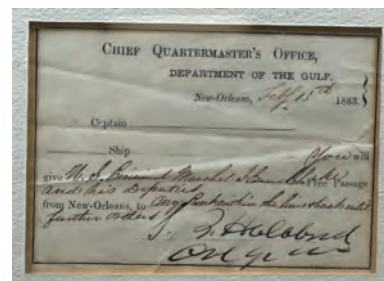 CHIEF QUARTERMASTER'S OFFICE,
DEPARTMENT OF THE GULF.
New-Orleans, Feby 15th 1863.
Captain
Ship You will
give U.S. Marshal Free Passage
and his Deputies
from New-Orleans, to any within the lines & back until
further orders
S. B. Holabird